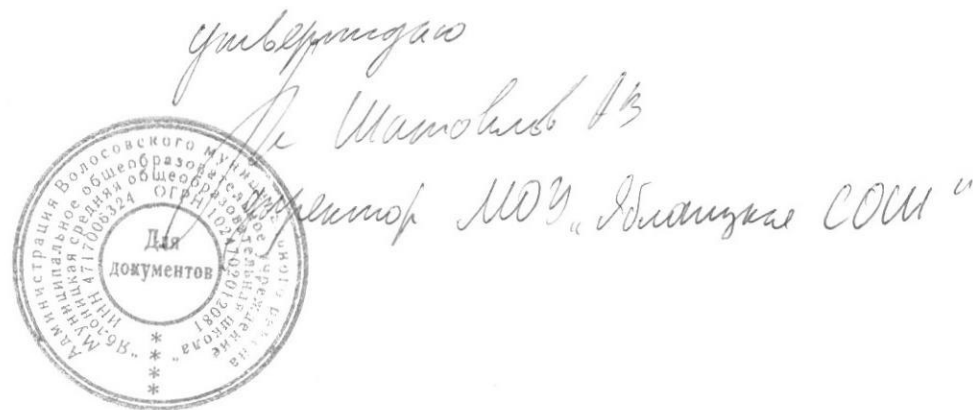 утверждаю
Шатовлов АЗ
директор МОУ „Яблоницкая СОШ"
Администрация Волосовского муниципального района
Муниципальное общеобразовательное учреждение
"Яблоницкая средняя общеобразовательная школа"
ИНН 4717006324 ОГРН 1024702012081
Для
документов
* * * *